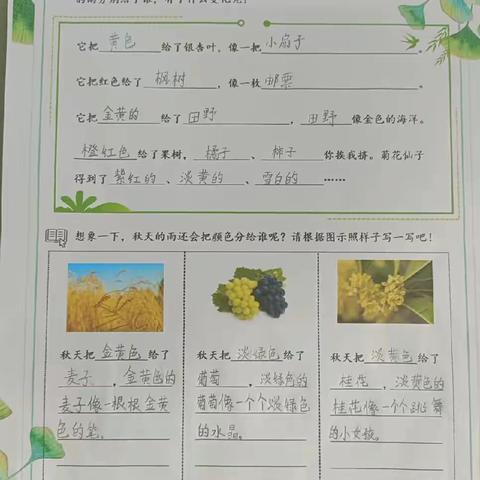 它把黄色给了银杏叶,像一把小扇子。
它把红色给了枫树,像一枚邮票。
它把金黄的给了田野,田野像金色的海洋。
橙红色给了果树,橘子、柿子你挨我挤。菊花仙子
得到了紫红的、淡黄的、雪白的……
想象一下,秋天的雨还会把颜色分给谁呢?请根据图示照样子写一写吧!
秋天把金黄色给了
麦子,金黄色的
麦子像一根根金黄
色的笔。
秋天把淡绿色给了
葡萄,淡绿色的
葡萄像一个个淡绿色
的水晶。
秋天把淡黄色给了
桂花,淡黄色的
桂花像一个个跳舞
的小女孩。